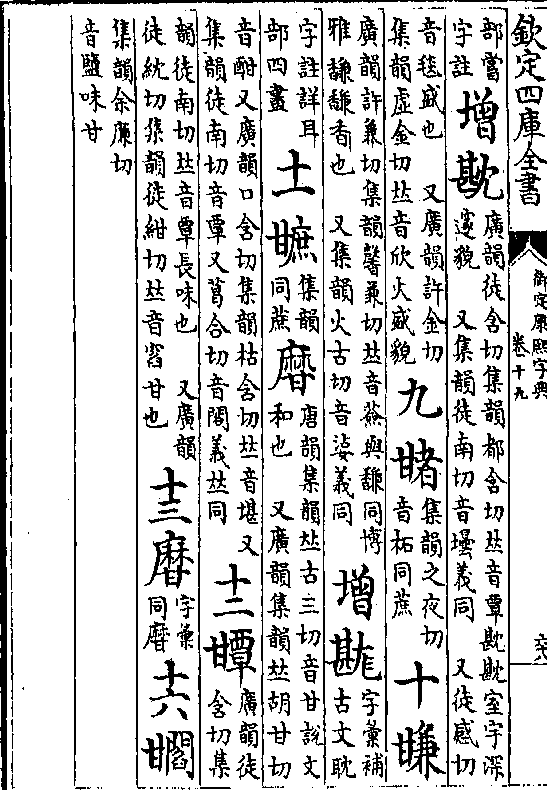 欽定四庫全書
御定康熙字典
卷十九
部嘗
字註
增㽎
廣韻徒含切集韻都含切𠀤音覃㽎㽎室宇深
邃貌 又集韻徒南切音壜義同 又徒感切
音毯盛也 又廣韻許金切
集韻虛金切𠀤音欣火盛貌
九
集韻之夜切
音柘同蔗
十㽐
廣韻許兼切集韻馨兼切𠀤音馦與馦同博
雅馦馦香也 又集韻火占切音 義同
增
字彙補
古文耽
字註詳耳
部四畫
十一
集韻
同蔗
唐韻集韻𠀤古三切音甘說文
和也 又廣韻集韻𠀤胡甘切
音酣又廣韻口含切集韻枯含切𠀤音堪又
集韻徒南切音覃又葛合切音閤義𠀤同
十二㽑
廣韻徒
含切集
韻徒南切𠀤音覃長味也 又廣韻
徒紞切集韻徒紺切𠀤音窞甘也
十三
字彙
同
十六
集韻余廉切
音鹽味甘